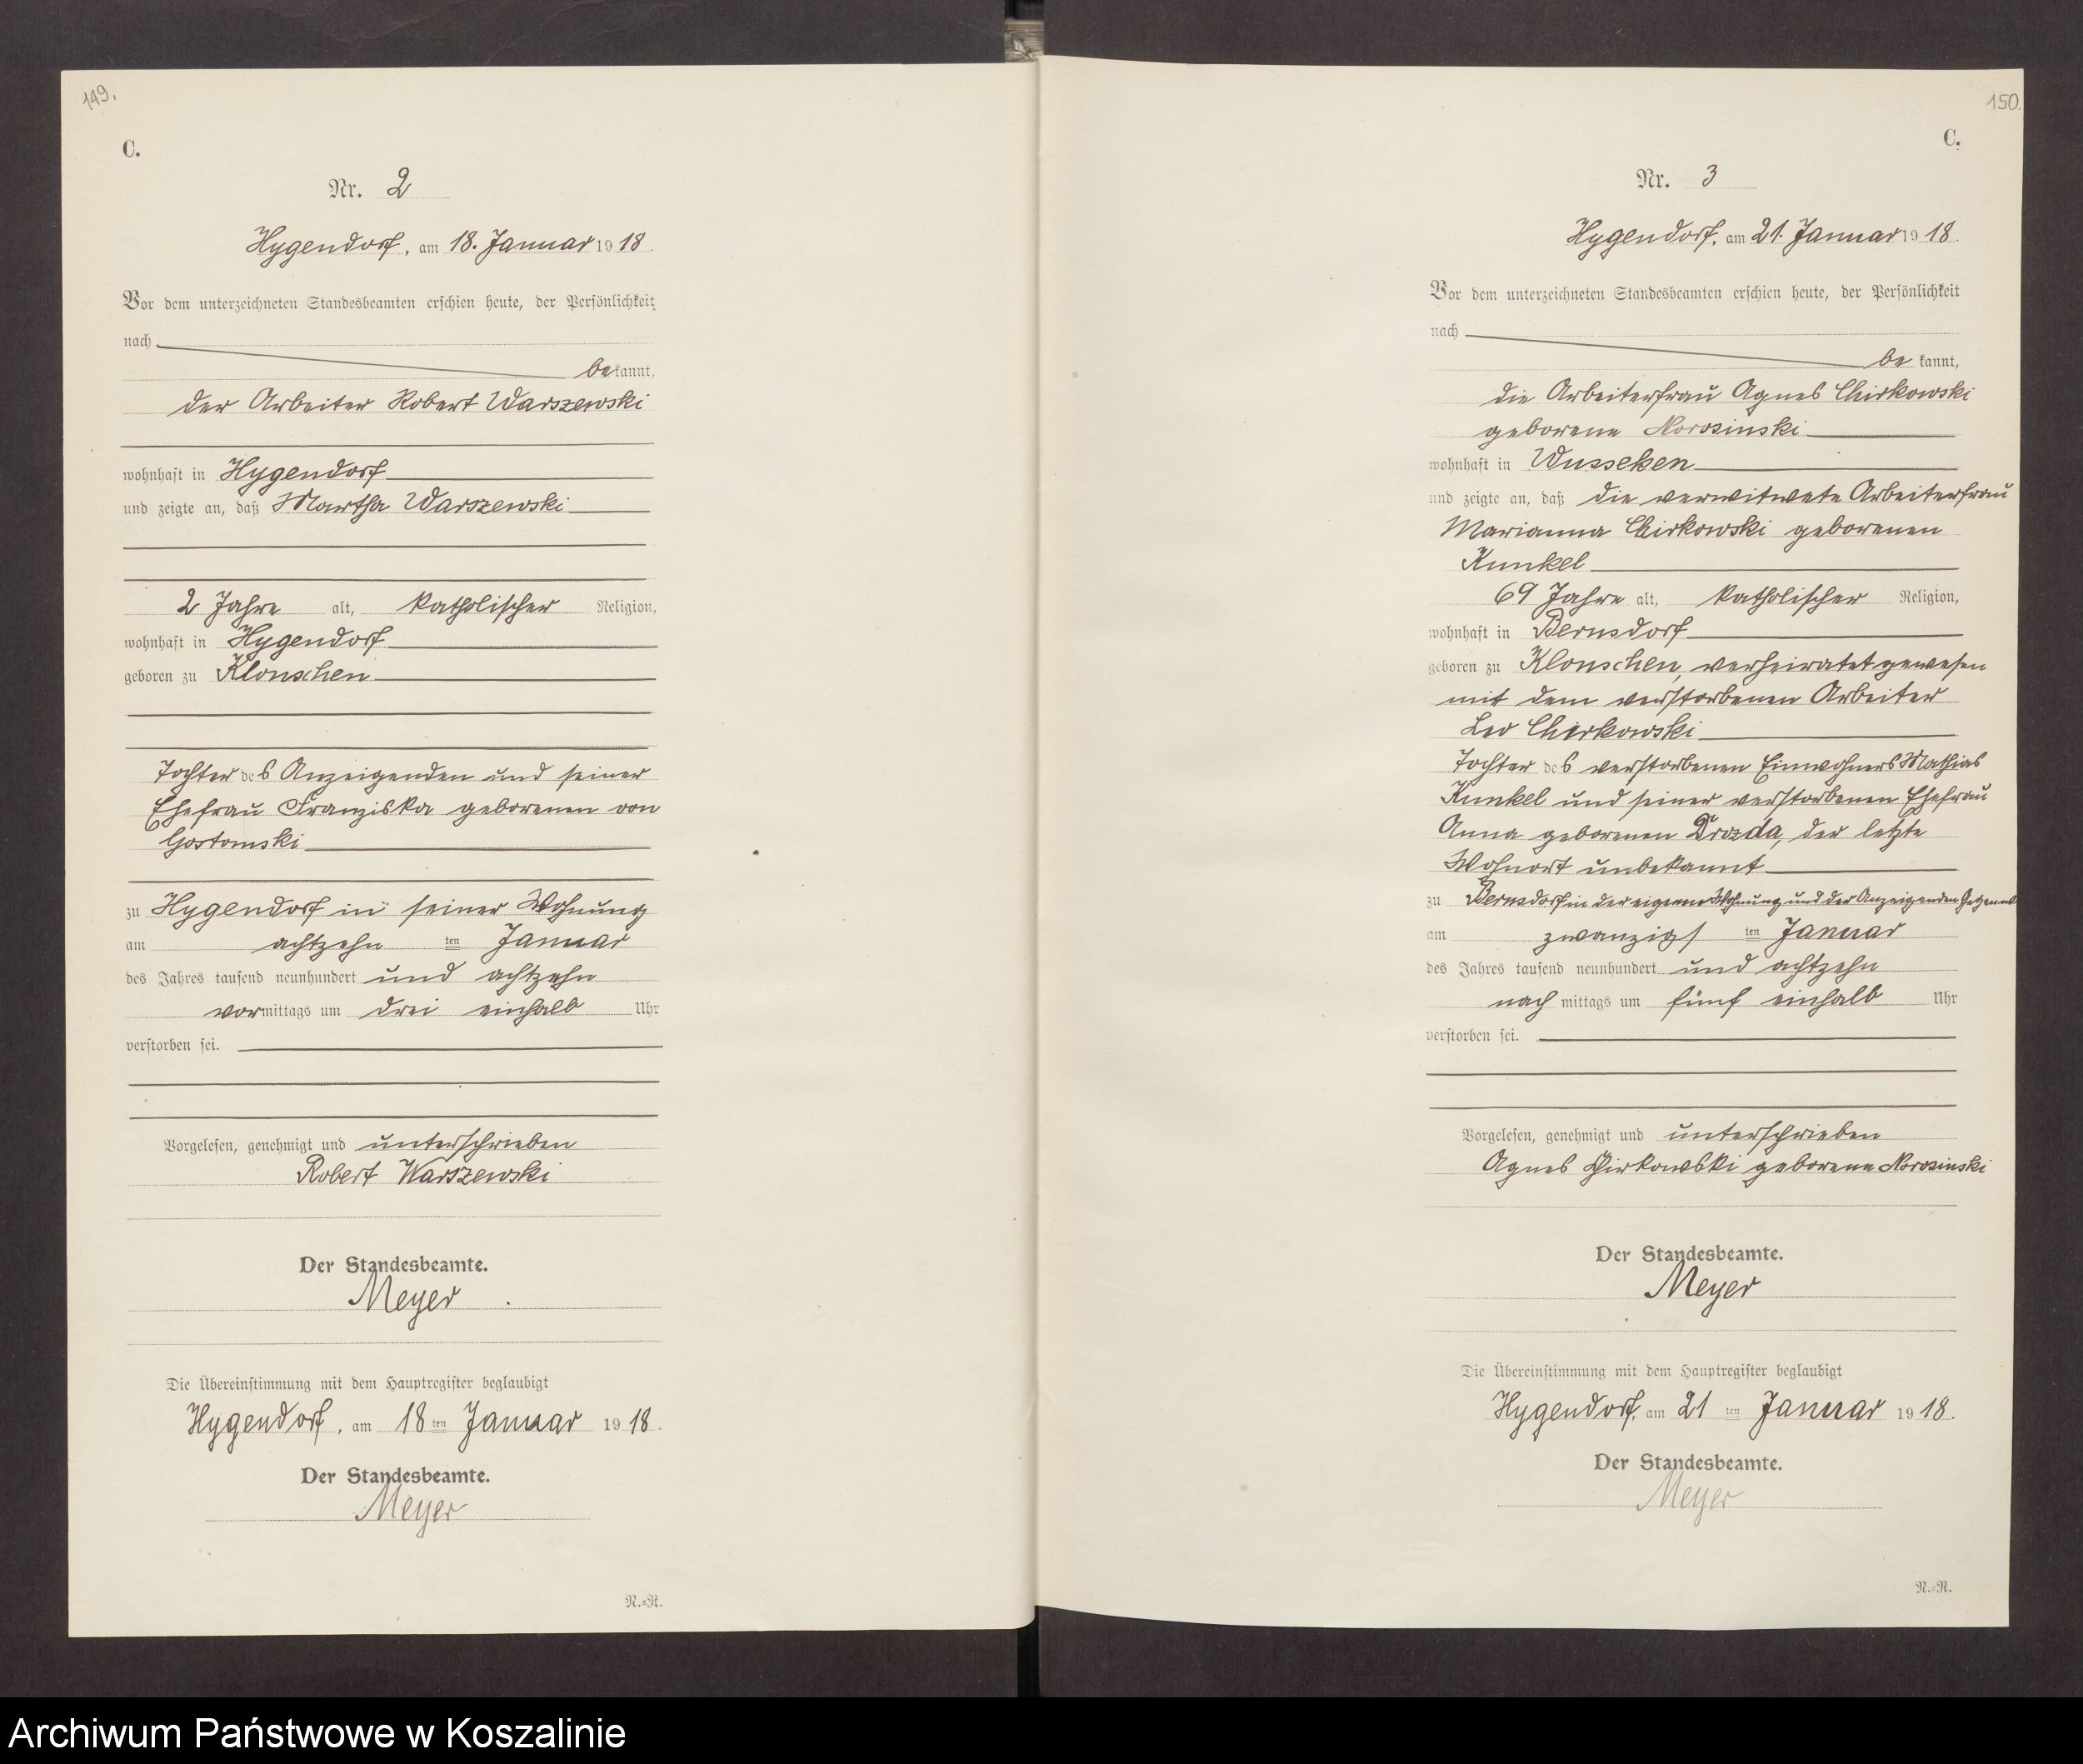 149.
C.
Nr. 2
Hygendorf, am 18. Januar 1918
Vor dem unterzeichneten Standesbeamten erschien heute, der Persönlichkeit
nach
bekannt,
der Arbeiter Robert Warszewski
wohnhaft in Hygendorf
und zeigte an, daß Martha Warszewski
2 Jahre alt, katholischer Religion,
wohnhaft in Hygendorf
geboren zu Klonschen
Tochter des Anzeigenden und seiner
Ehefrau Franziska geborenen von
Gostomski
zu Hygendorf in seiner Wohnung
am achtzehn ten Januar
des Jahres tausend neunhundert und achtzehn
vormittags um drei einhalb Uhr
verstorben sei.
Vorgelesen, genehmigt und unterschrieben
Robert Warszewski
Der Standesbeamte.
Meyer
Die Übereinstimmung mit dem Hauptregister beglaubigt
Hygendorf, am 18ten Januar 1918.
Der Standesbeamte.
Meyer
N.=N.
150.
C.
Nr. 3
Hygendorf, am 21. Januar 1918.
Vor dem unterzeichneten Standesbeamten erschien heute, der Persönlichkeit
nach
bekannt,
die Arbeiterfrau Agnes Chirkowski
geborene Norosinski
wohnhaft in Wusseken
und zeigte an, daß die verwitwete Arbeiterfrau
Marianna Chirkowski geborenen
Kunkel
69 Jahre alt, katholischer Religion,
wohnhaft in Bernsdorf
geboren zu Klonschen, verheiratet gewesen
mit dem verstorbenen Arbeiter
Leo Chirkowski
Tochter des verstorbenen Einwohners Mathias
Kunkel und seiner verstorbenen Ehefrau
Anna geborenen Drozda, der letzte
Wohnort unbekannt
zu Bernsdorf in der eigenen Wohnung und der Anzeigenden
am zwanzigs ten Januar
des Jahres tausend neunhundert und achtzehn
nach mittags um fünf einhalb Uhr
verstorben sei.
Vorgelesen, genehmigt und unterschrieben
Agnes Chirkowski geborene Norosinski
Der Standesbeamte.
Meyer
Die Übereinstimmung mit dem Hauptregister beglaubigt
Hygendorf, am 21 ten Januar 1918.
Der Standesbeamte.
Meyer
N.=N.
Archiwum Państwowe w Koszalinie